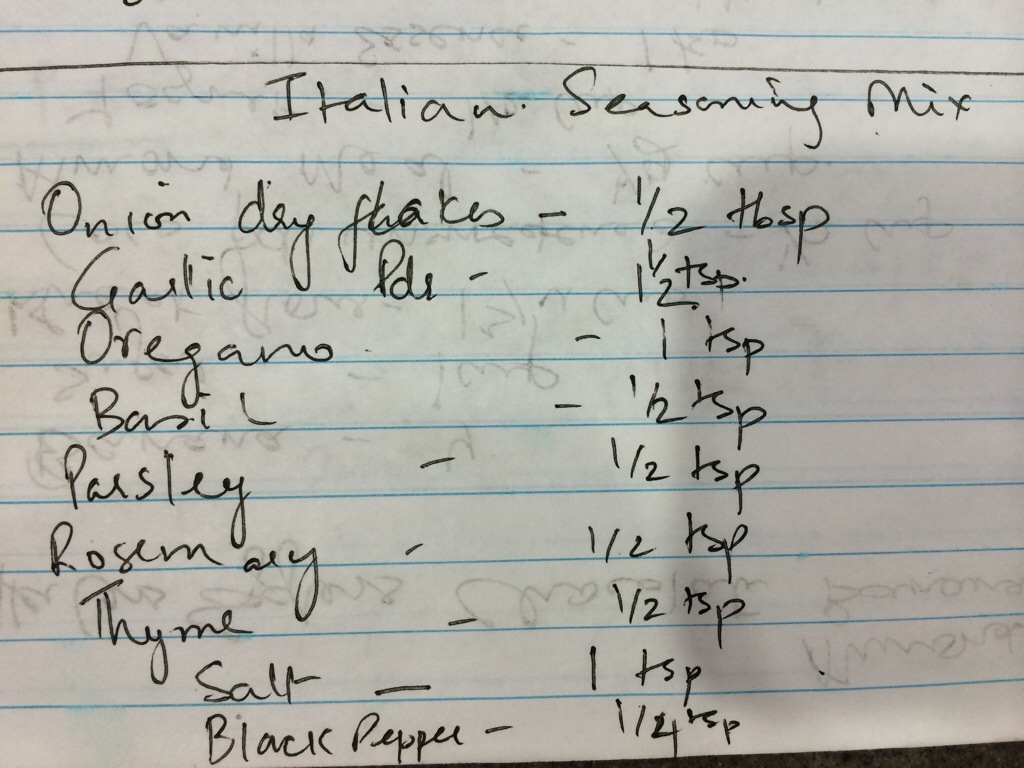 Italian Seasoning Mix
Onion dry flakes - 1/2 tbsp
Garlic Pdr - 1 1/2 tsp.
Oregano - 1 tsp
Basil - 1/2 tsp
Parsley - 1/2 tsp
Rosemary - 1/2 tsp
Thyme - 1/2 tsp
Salt - 1 tsp
Black Pepper - 1/4 tsp